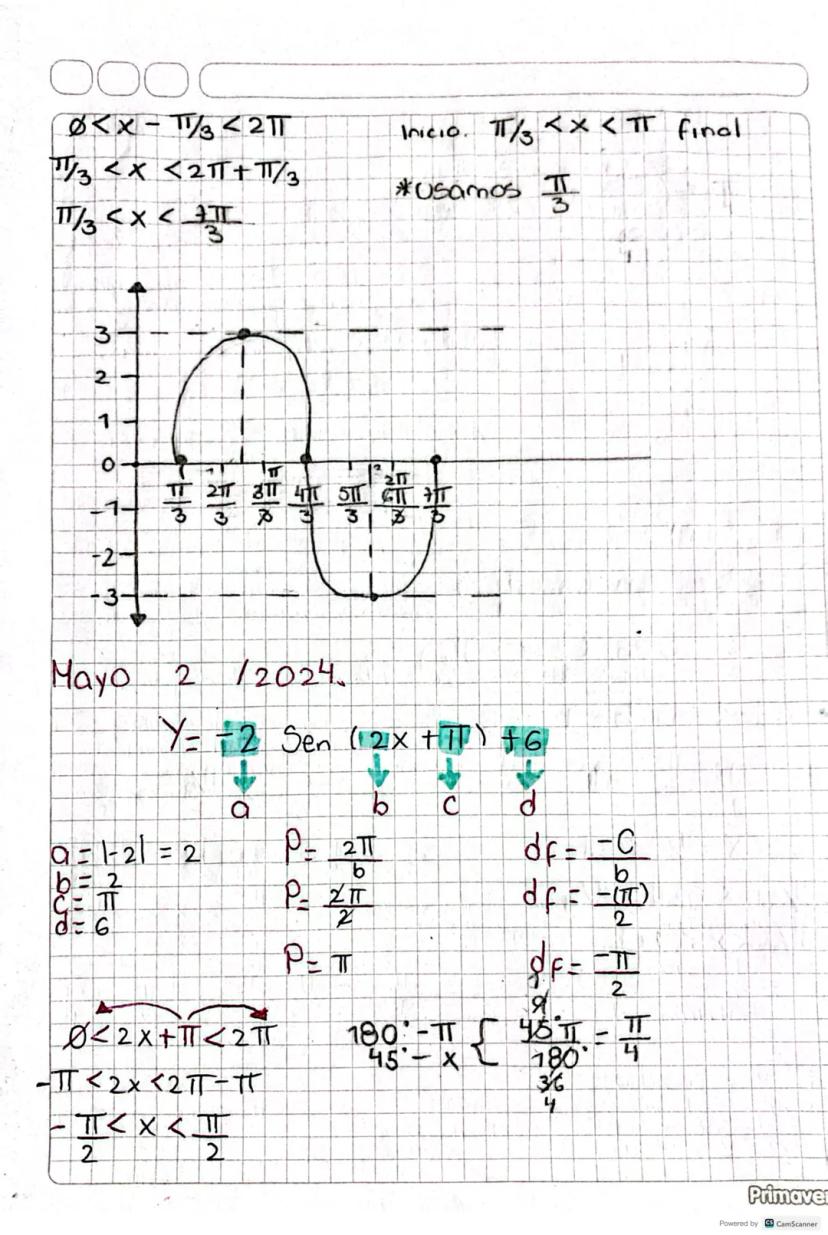 0<x-π/3<2π
Inicio. π/3 <x<π final
π/3 <x <2π+π/3
*usamos π/3
π/3 <x< 7π/3
3
2
1
0
-1
-2
-3
π/3 2π/3 3π/3 π 4π/3 5π/3 2π 6π/3 7π/3
Mayo 2 /2024.
Y= -2 Sen (2x +π) +6
a b c d
a = |-2| = 2
b= 2
c= π
d= 6
P= 2π/b
P= 2π/2
P= π
df= -C/b
df= -(π)/2
df= -π/2
0<2x+π<2π
-π <2x<2π-π
-π/2 < x < π/2
180°-π
45°- x
{ 45°π/180° = π/4
9
36
4
Primaver
Powered by CS CamScanner